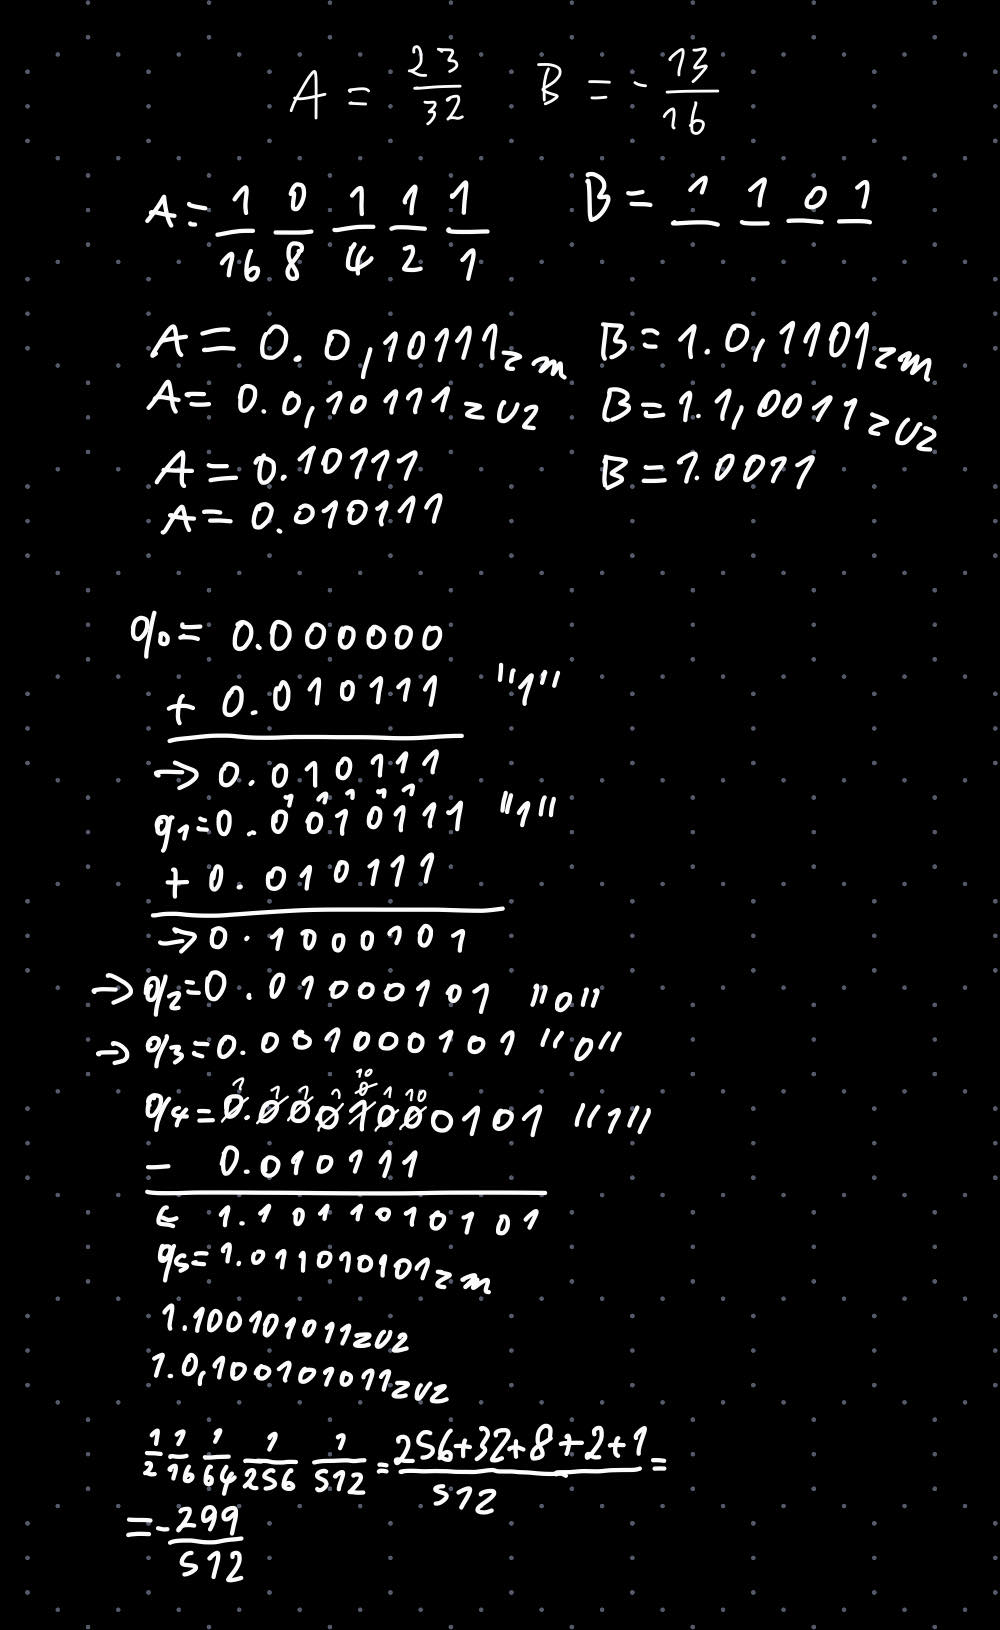 A = 23/32 B = - 13/16
A = 1/16 0/8 1/4 1/2 1/1 B = 1 1 0 1
A = 0.0,10111zm B = 1.0,1101zm
A = 0.0,10111zu2 B = 1.1,0011zu2
A = 0.10111 B = 1.0011
A = 0.010111
q0 = 0.000000
+ 0.010111 "1"
→ 0.010111
1 1 1 1 1
q1 = 0.0010111 "1"
+ 0.010111
→ 0.1000101
→ q2 = 0.01000101 "0"
→ q3 = 0.001000101 "0"
1 1 1 1 10 0 1 10
q4 = 0.0001000101 "1"
- 0.010111
← 1.1011010101
q5 = 1.011010101zm
1.100101011zu2
1.0,100101011zu2
1/2 1/16 1/64 1/256 1/512 = 256+32+8+2+1/512 =
= - 299/512